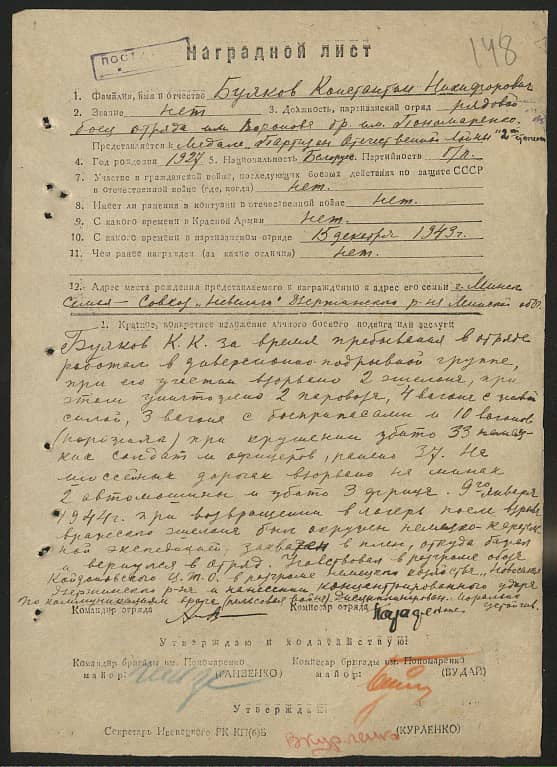 148
Наградной лист
1. Фамилия, имя и отчество Буяков Константин Никифорович
2. Звание нет 3. Должность, партизанский отряд рядовой
боец отряда им. Воронова бр. им. Пономаренко.
Представляется к Медали "Партизан Отечественной Войны" 2й степени
4. Год рождения 1927 5. Национальность Белорус. Партийность б/п.
7. Участие в гражданской войне, последующих боевых действиях по защите СССР
в отечественной войне (где, когда) нет.
8. Имеет ли ранения и контузии в отечественной войне нет.
9. С какого времени в Красной Армии нет.
10. С какого времени в партизанском отряде 15 декабря 1943 г.
11. Чем ранее награжден (за какие отличия) нет.
12. Адрес места рождения представляемого к награждению и адрес его семьи г. Минск
Семья — Совхоз Дзержинского р-на Минской обл.
1. Краткое, конкретное изложение личного боевого подвига или заслуги
Буяков К.К. за время пребывания в отряде
работал в диверсионно-подрывной группе,
при его участии взорвано 2 эшелона, при
этом уничтожено 2 паровоза, 4 вагона с живой
силой, 3 вагона с боеприпасами и 10 вагонов
(порожняка) при крушении убито 33 немец-
ких солдат и офицеров, ранено 37. На
шоссейных дорогах взорвано на минах
2 автомашины и убито 3 фрица. 9го января
1944 г. при возвращении в лагерь после взрыва
вражеского эшелона был окружен немецко-
ной экспедицией, захвачен в плен, откуда бежал
и вернулся в отряд. Участвовал в разгроме обоза
Койдановского в разгроме немецкого хозяйства
Дзержинского р-на и нанесении концентрированного удара
по коммуникациям врага (рельсовая война). Дисциплинирован. Морально
устойчив.
Командир отряда Комиссар отряда
Утверждаю и ходатайствую:
Командир бригады им. Пономаренко Комиссар бригады им. Пономаренко
майор: (ГАНЗЕНКО) майор: (БУДАЙ)
Утверждаю:
Секретарь Ивенецкого РК КП(б)Б (КУРЛЕНКО)